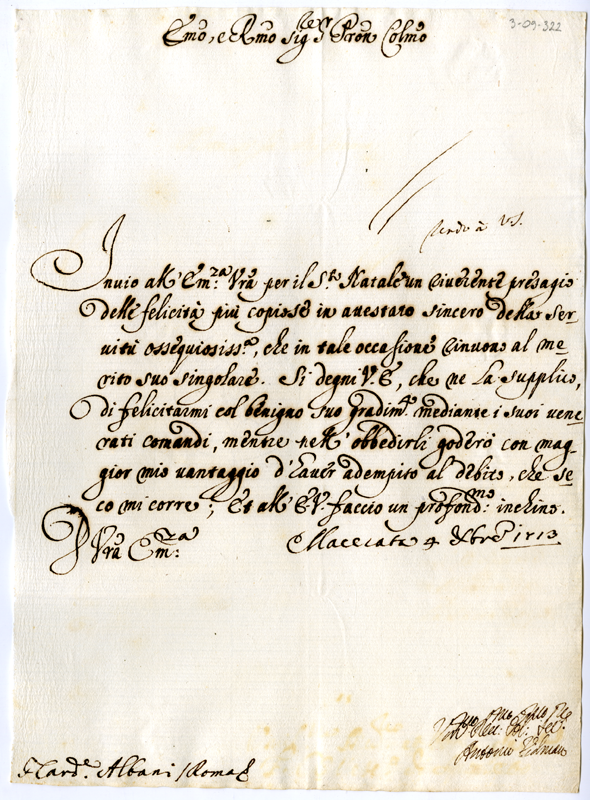 3-09-322
Emo, e Rmo Sig.r Pron Colmo
Invio all' Em.za Vra per il S.to Natale un riverente presagio
delle felicità più copiose in attestato sincero della ser-
vitù ossequiosiss.a, che in tale occasione rinuovo al me-
rito suo singolare. Si degni V.E., che ne la supplico,
di felicitarmi col benigno suo gradim.to mediante i suoi vene-
rati comandi, mentre nell' obbedirli goderò con mag-
gior mio vantaggio d'haver adempito al debito, che se-
co mi corre; Et all' E.V. faccio un profond.mo inchino.
Vra Em.za
Macerata 4 Xbre 1713
Antonio
Card.e Albani / Roma